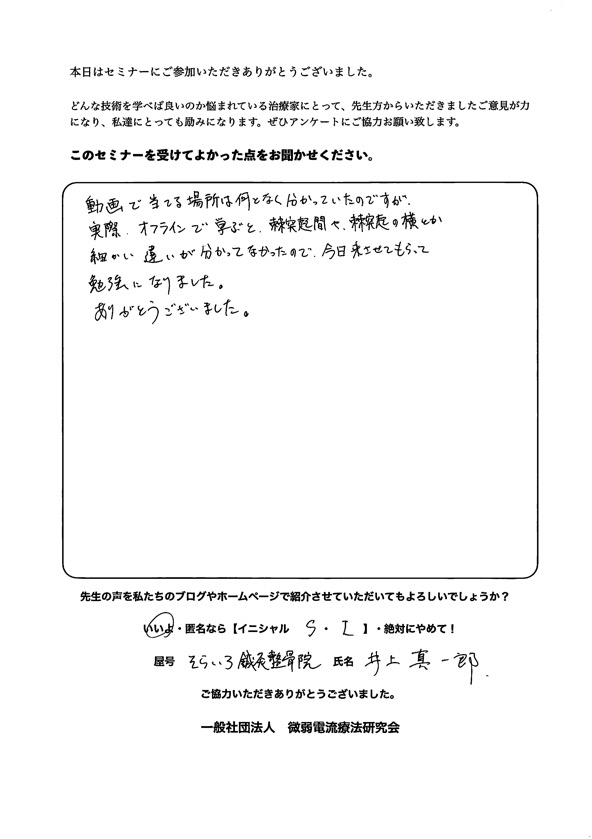 本日はセミナーにご参加いただきありがとうございました。
どんな技術を学べば良いのか悩まれている治療家にとって、先生方からいただきましたご意見が力
になり、私達にとっても励みになります。ぜひアンケートにご協力お願い致します。
このセミナーを受けてよかった点をお聞かせください。
動画で当てる場所は何となく分かっていたのですが、
実際、オフラインで学ぶと、棘突起間や、棘突起の横とか
細かい違いが分かってなかったので、今日来させてもらって
勉強になりました。
ありがとうございました。
先生の声を私たちのブログやホームページで紹介させていただいてもよろしいでしょうか？
いいよ・匿名なら【イニシャル S・I 】・絶対にやめて！
屋号 そらいろ鍼灸整骨院 氏名 井上真一郎
ご協力いただきありがとうございました。
一般社団法人 微弱電流療法研究会